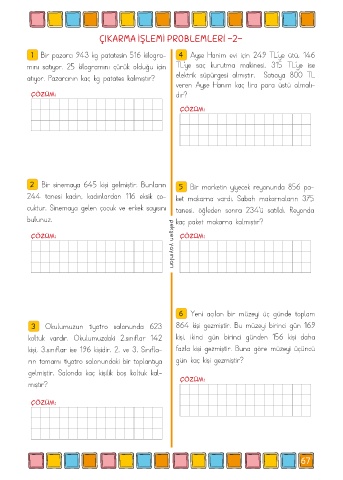 ÇIKARMA İŞLEMİ PROBLEMLERİ -2-
1 Bir pazarcı 943 kg patatesin 516 kilogra-
mını satıyor. 25 kilogramını çürük olduğu için
atıyor. Pazarcının kaç kg patates kalmıştır?
ÇÖZÜM:
2 Bir sinemaya 645 kişi gelmiştir. Bunların
244 tanesi kadın, kadınlardan 116 eksik ço-
cuktur. Sinemaya gelen çocuk ve erkek sayısını
bulunuz.
ÇÖZÜM:
3 Okulumuzun tiyatro salonunda 623
koltuk vardır. Okulumuzdaki 2.sınıflar 142
kişi, 3.sınıflar ise 196 kişidir. 2. ve 3. Sınıfla-
rın tamamı tiyatro salonundaki bir toplantıya
gelmiştir. Salonda kaç kişilik boş koltuk kal-
mıştır?
ÇÖZÜM:
4 Ayşe Hanım evi için 249 TL'ye ütü, 146
TL'ye saç kurutma makinesi, 315 TL'ye ise
elektrik süpürgesi almıştır. Satıcıya 800 TL
veren Ayşe Hanım kaç lira para üstü almalı-
dır?
ÇÖZÜM:
5 Bir marketin yiyecek reyonunda 856 pa-
ket makarna vardı. Sabah makarnaların 375
tanesi, öğleden sonra 234'ü satıldı. Reyonda
kaç paket makarna kalmıştır?
ÇÖZÜM:
6 Yeni açılan bir müzeyi üç günde toplam
864 kişi gezmiştir. Bu müzeyi birinci gün 169
kişi, ikinci gün birinci günden 156 kişi daha
fazla kişi gezmiştir. Buna göre müzeyi üçüncü
gün kaç kişi gezmiştir?
ÇÖZÜM:
67